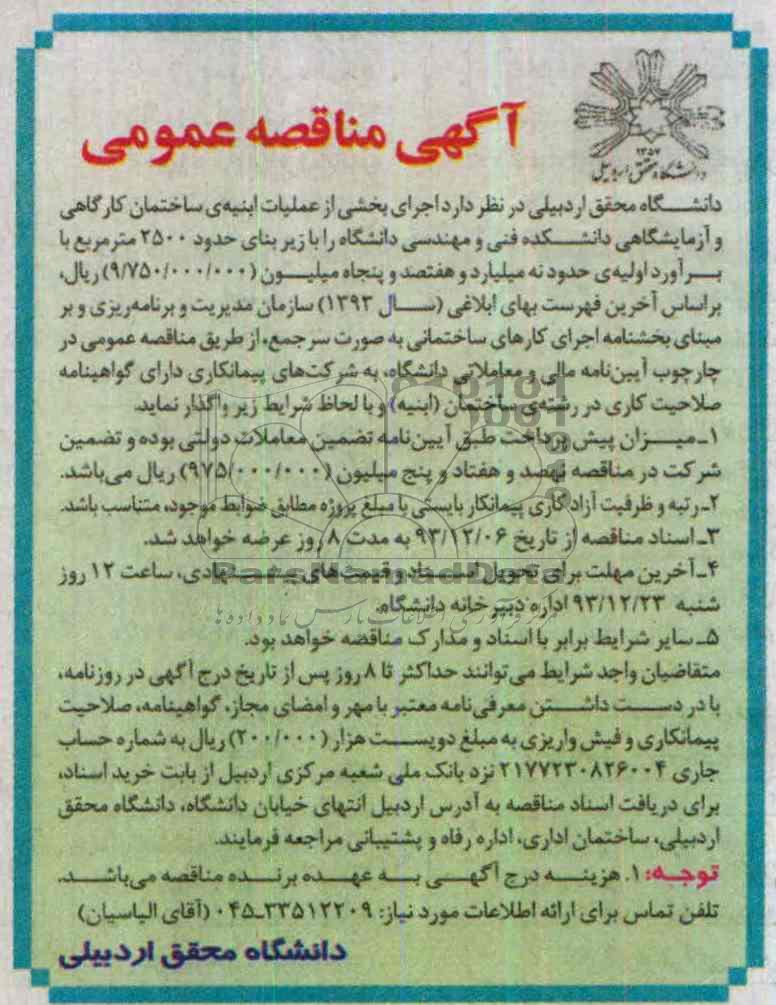 ۱۳۵۷
دانشگاه محقق اردبیلی
آگهی مناقصه عمومی
دانشگاه محقق اردبیلی در نظر دارد اجرای بخشی از عملیات ابنیه‌ی ساختمان کارگاهی
و آزمایشگاهی دانشکده فنی و مهندسی دانشگاه را با زیر بنای حدود ۲۵۰۰ متر مربع با
برآورد اولیه‌ی حدود نه میلیارد و هفتصد و پنجاه میلیون (۹/۷۵۰/۰۰۰/۰۰۰) ریال،
براساس آخرین فهرست بهای ابلاغی (سال ۱۳۹۳) سازمان مدیریت و برنامه‌ریزی و بر
مبنای بخشنامه اجرای کارهای ساختمانی به صورت سرجمع، از طریق مناقصه عمومی در
چارچوب آیین‌نامه مالی و معاملاتی دانشگاه، به شرکت‌های پیمانکاری دارای گواهینامه
صلاحیت کاری در رشته‌ی ساختمان (ابنیه) و با لحاظ شرایط زیر واگذار نماید.
۱ـ میزان پیش پرداخت طبق آیین‌نامه تضمین معاملات دولتی بوده و تضمین
شرکت در مناقصه نهصد و هفتاد و پنج میلیون (۹۷۵/۰۰۰/۰۰۰) ریال می‌باشد.
۲ـ رتبه و ظرفیت آزاد کاری پیمانکار بایستی با مبلغ پروژه مطابق ضوابط موجود، متناسب باشد.
۳ـ اسناد مناقصه از تاریخ ۹۳/۱۲/۰۶ به مدت ۸ روز عرضه خواهد شد.
۴ـ آخرین مهلت برای تحویل اسناد و قیمت‌های پیشنهادی، ساعت ۱۲ روز
شنبه ۹۳/۱۲/۲۳ اداره دبیرخانه دانشگاه.
۵ـ سایر شرایط برابر با اسناد و مدارک مناقصه خواهد بود.
متقاضیان واجد شرایط می‌توانند حداکثر تا ۸ روز پس از تاریخ درج آگهی در روزنامه،
با در دست داشتن معرفی‌نامه معتبر با مهر و امضای مجاز، گواهینامه، صلاحیت
پیمانکاری و فیش واریزی به مبلغ دویست هزار (۲۰۰/۰۰۰) ریال به شماره حساب
جاری ۲۱۷۷۲۳۰۸۲۶۰۰۴ نزد بانک ملی شعبه مرکزی اردبیل از بابت خرید اسناد،
برای دریافت اسناد مناقصه به آدرس اردبیل انتهای خیابان دانشگاه، دانشگاه محقق
اردبیلی، ساختمان اداری، اداره رفاه و پشتیبانی مراجعه فرمایند.
توجه: ۱. هزینه درج آگهی به عهده برنده مناقصه می‌باشد.
تلفن تماس برای ارائه اطلاعات مورد نیاز: ۳۳۵۱۲۲۰۹ـ۰۴۵ (آقای الیاسیان)
دانشگاه محقق اردبیلی
ParsNamadData